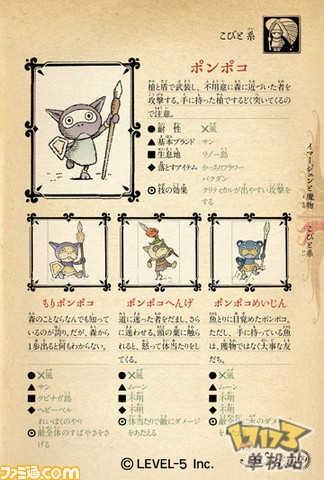 こびと系
ポンポコ
槍と盾で武装し、不用意に森に近づいた者を
攻撃する。手に持った槍でするどく突いてくるの
で注意。
●耐性
×風
▲基本ブランド
サン
■生息地
リノー島
◆落とすアイテム
バクダン
◎技の効果
クリティカルが出やすい攻撃を
する
イマージェンと魔物
こびと系
もりポンポコ
森のことならなんでも知って
いるのが誇り。だが、森から
1歩出ると何もわからない。
●×風
▲サン
■クビナガ島
◆ヘビーベル
れいばくのやり
◎敵全体のすばやさをさ
げる
ポンポコへんげ
道に迷った者をだまし、さら
に迷わせる。頭の葉に触ら
れると、怒って体当たりをし
てくる。
●×風
▲ムーン
■不明
◆不明
◎体当たりで敵にダメージ
をあたえる
ポンポコめいじん
魚とりに目覚めたポンポコ。
ただし、手に持っている魚
は、獲物ではなく大事な友
だち。
●×風
▲ムーン
■不明
◆不明
ファミ通.com
©LEVEL-5 Inc.
单机站